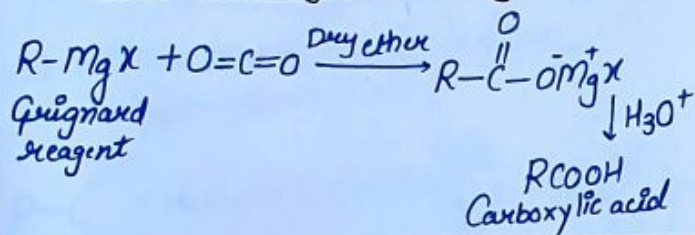 O
R-MgX + O=C=O Dry ether R-C-O⁻Mg⁺X
Grignard
reagent
H3O⁺
RCOOH
Carboxylic acid